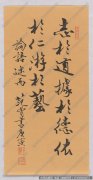 志於道據於德依
於仁游於藝
論語述而